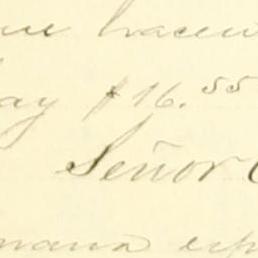 ue hacen
ay $16.55
Señor
mana esp